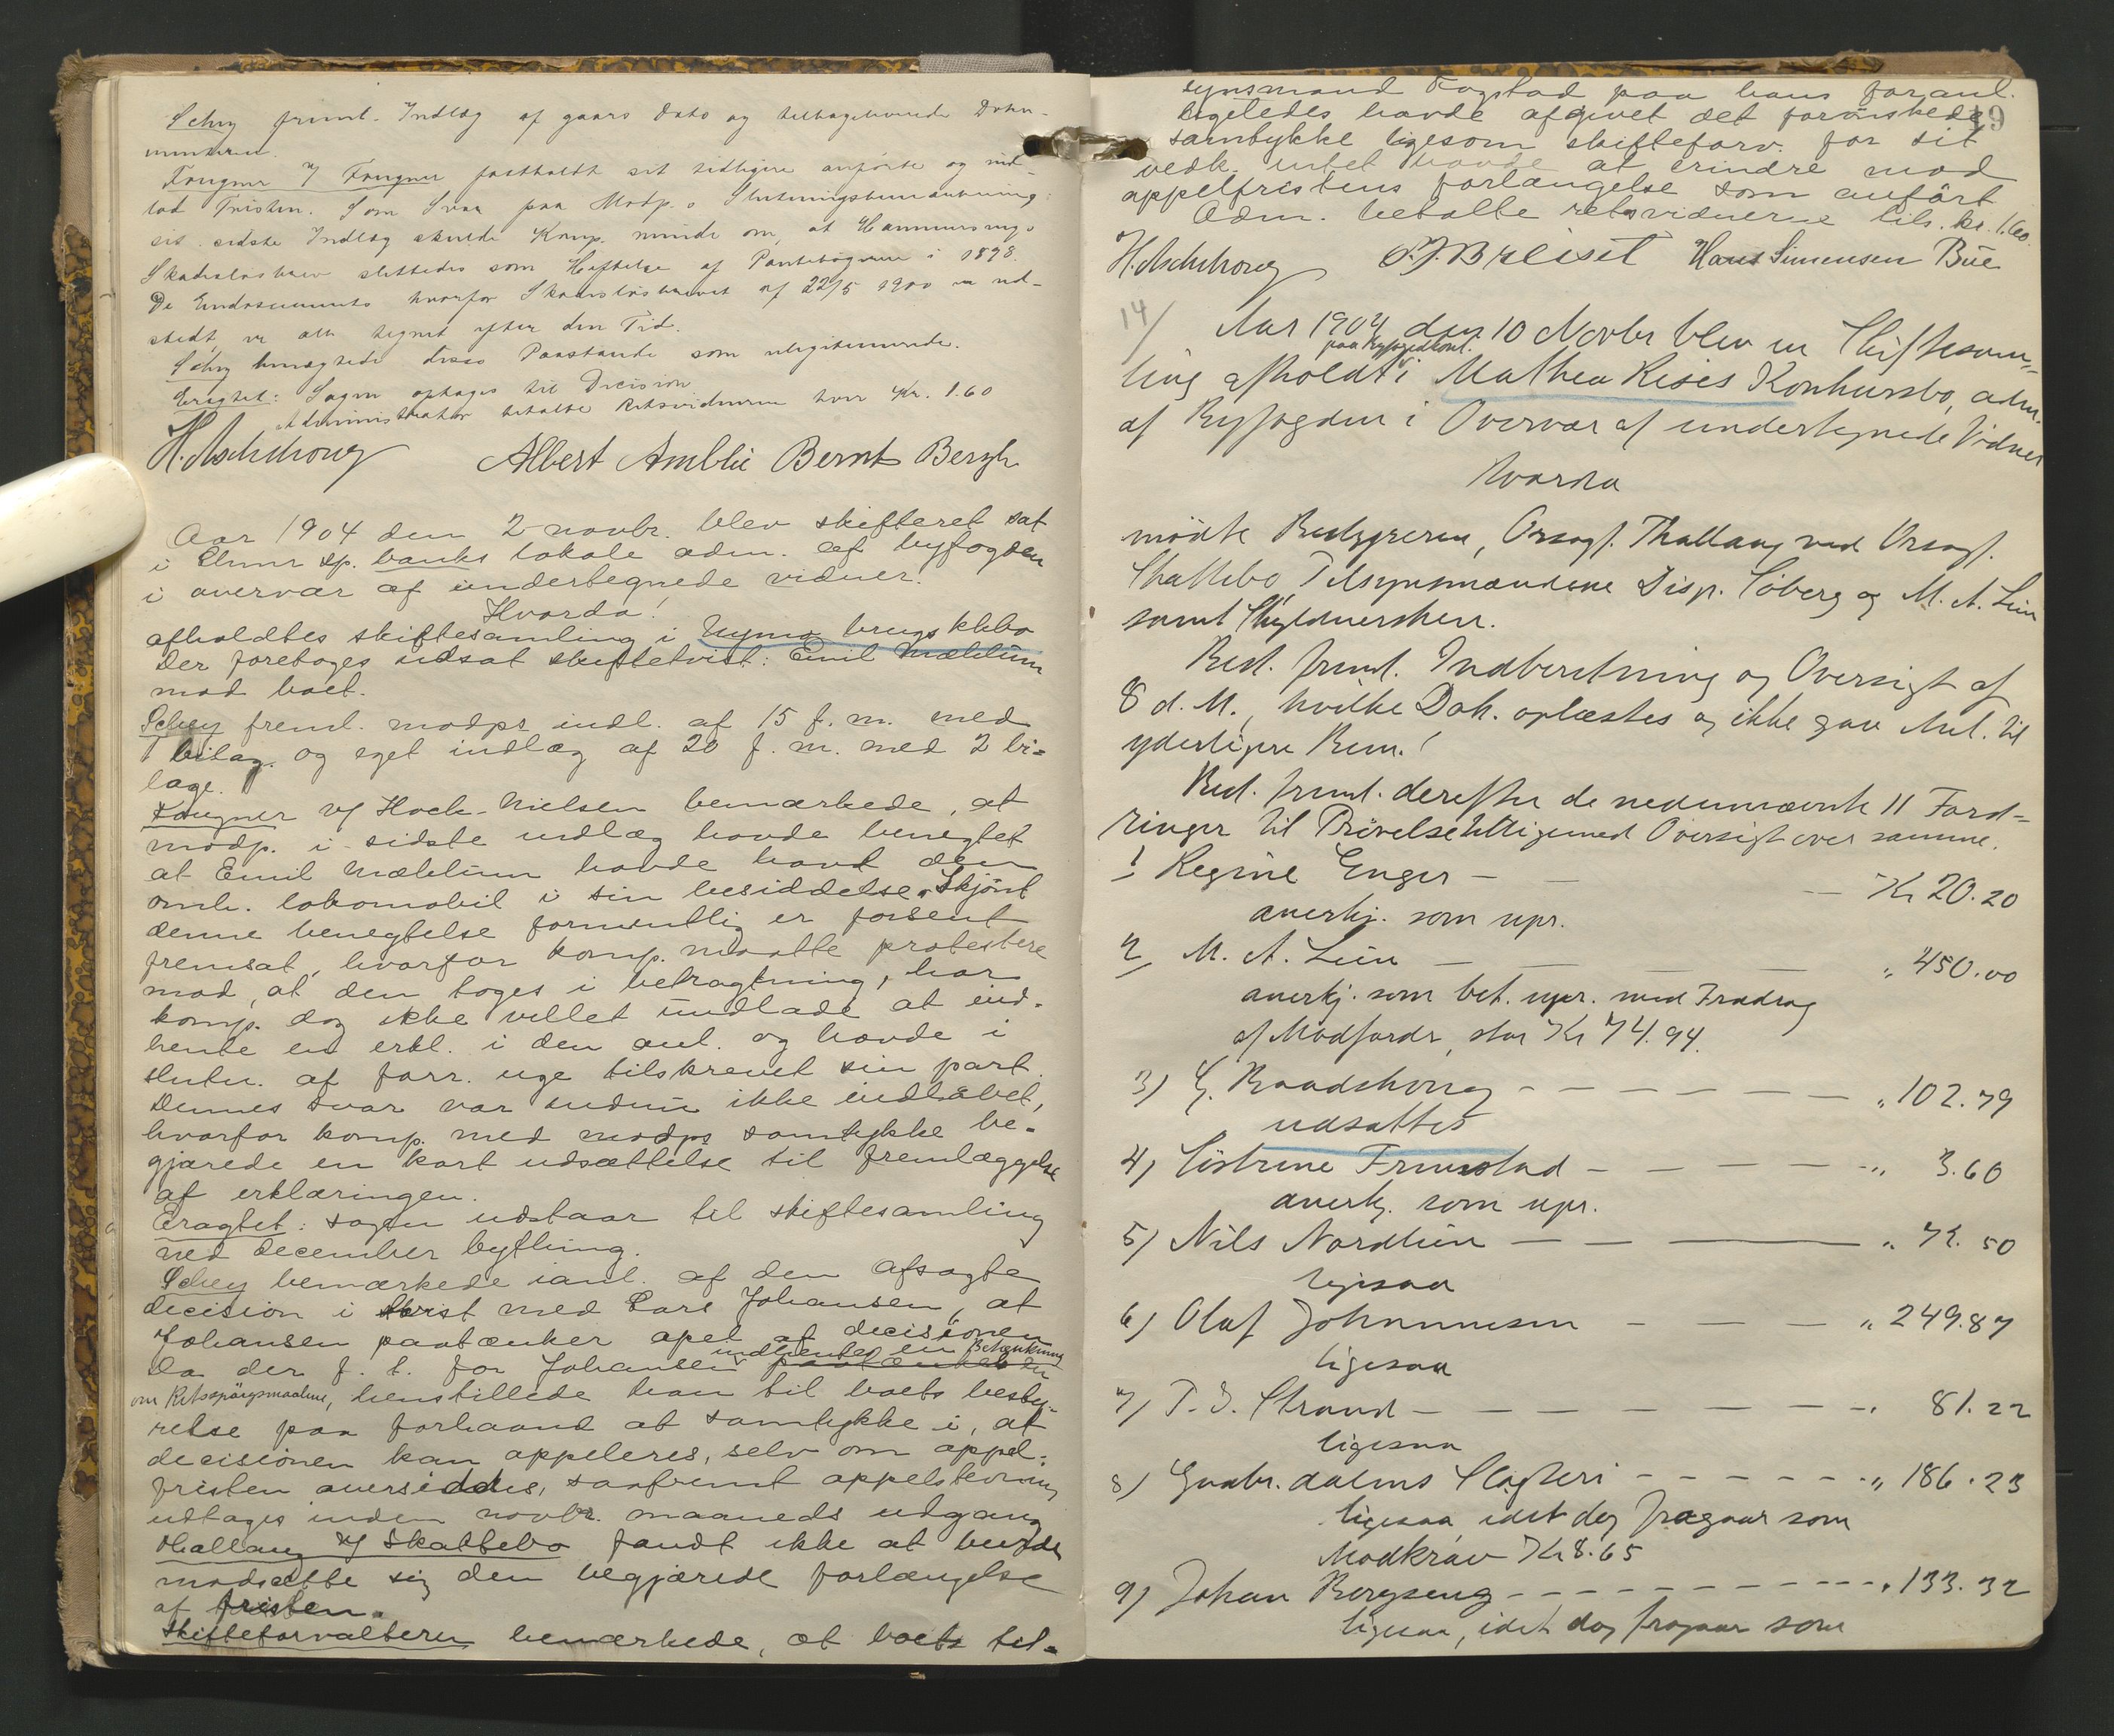 Schey freml. Indlæg af gaars Dato og tilbageleverede Doku-
menterne.
Fougner v/ Fougner fastholdt sit tidligere anførte og ind-
lod Tvisten. Som Svar paa Modp.s Slutningsbemærkning i
sit sidste Indlæg skulde Komp. minde om, at Hammersengs
Skadesløsbrev slettedes som Heftelse af Pantebøgerne i 1898.
De Endossements hvorfor Skadesløsbrevet af 22/5 1900 er ud-
stedt, er alle tegnet efter den Tid.
Schey benægtede disse Paastande som ulegitimerede.
Eragtet: Sagen optages til Decision
Administrator betalte Retsvidnerne hver Kr. 1.60
H. Aschehoug Albert Amblie Bernt Bergh
Aar 1904 den 2 novbr. blev skifteret sat
i Elvær sp. banks lokale adm. af byfogden
i overvær af undertegnede vidner.
Hvorda!
afholdtes skiftesamling i Nymo brugs kkbo
Der foretoges udsat skiftetvist: Emil Mæhlum
mod boet.
Schey freml. modps indl. af 15 f. m. med
1 bilag. og eget indlæg af 20 f. m. med 2 bi=
lage.
Fougner v/ Hoch-Nielsen bemærkede, at
modp. i sidste indlæg havde benegtet
at Emil Mæhlum havde havt den
omh. lokomobil i sin besiddelse. Skjønt
denne benegtelse formentlig er forsent
fremsat, hvorfor komp. maatte protestere
mod, at den toges i betragtning, har
komp. dog ikke villet undlade at ind-
hente en erkl. i den anl. og havde i
slutn. af forr. uge tilskrevet sin part.
Dennes svar var endnu ikke indløbet,
hvorfor komp. med modps samtykke be-
gjærede en kort udsættelse til fremlæggelse
af erklæringen.
Eragtet: sagen udstaar til skiftesamling
ved december bything.
Schey bemærkede ianl. af den afsagte
decision i tvist med Lars Johansen, at
Johansen paatænker apel af decisionen
Da der f. t. for Johansen indhentes en Betænkning
om Retsspørgsmaalene, henstillede han til boets besty-
relse paa forhaand at samtykke i, at
decisionen kan appeleres, selv om appel-
fristen oversiddes, saafremt appelstevning
udtages inden novbr. maaneds udgang
Thallaug v/ Skattebo fandt ikke at burde
modsætte sig den begjærede forlængelse
af fristen.
Skifteforvalteren bemærkede, at boets til-
synsmand Fogstad paa hans foranl.
ligeledes havde afgivet det forønskede
19
samtykke ligesom skifteforv. for sit
vedk. intet havde at erindre mod
appelfristens forlængelse som anført
Adm. betalte retsvidnerne tils. kr. 1.60.
H. Aschehoug O. J. Breiset Hans Simensen Büe
14/ Aar 1904 den 10 Novbr blev en Skiftesam-
paa Byfogedkont.
ling afholdt i Mathea Rises Konkursbo, adm.
af Byfogden i Overvær af undertegnede Vidner
Hvorda
mødte Bestyreren, Ovsagf. Thallaug ved Ovsagf.
Skattebo, Tilsynsmændene Disp. Søberg og M. A. Lien
samt Skyldnersken.
Best. freml. Indberetning og Oversigt af
8 d. M., hvilke Dok. oplæstes og ikke gav Anl. til
yderligere Bem.!
Best. freml. derefter de nedennævnte 11 Ford=
ringer til Prøvelse tilligemed Oversigt over samme.
1 Regine Enger - - - Kr 20.20
anerkj. som upr.
2, M. A. Lien - - - - „ 450.00
anerkj. som bet. upr. med Fradrag
af Modfordr, stor Kr 74.94.
3) G. Baadshoug - - - - - - „ 102.79
udsattes
4) Sistrene Frimstad - - - - - „ 3.60
anerkj. som upr.
5) Nils Nordlien - - - „ 72.50
ligesaa
6) Oluf Johannesen - - - „ 249.87
ligesaa
7) T. S. Strand - - - - - - - „ 81.22
ligesaa
8) Gudbr.dalens Slagteri - - - - - „ 186.23
ligesaa, idet dog fragaar som
Modkrav Kr 8.65
9) Johan Bergseng - - - - - - - - „ 133.32
ligesaa, idet dog fragaar som